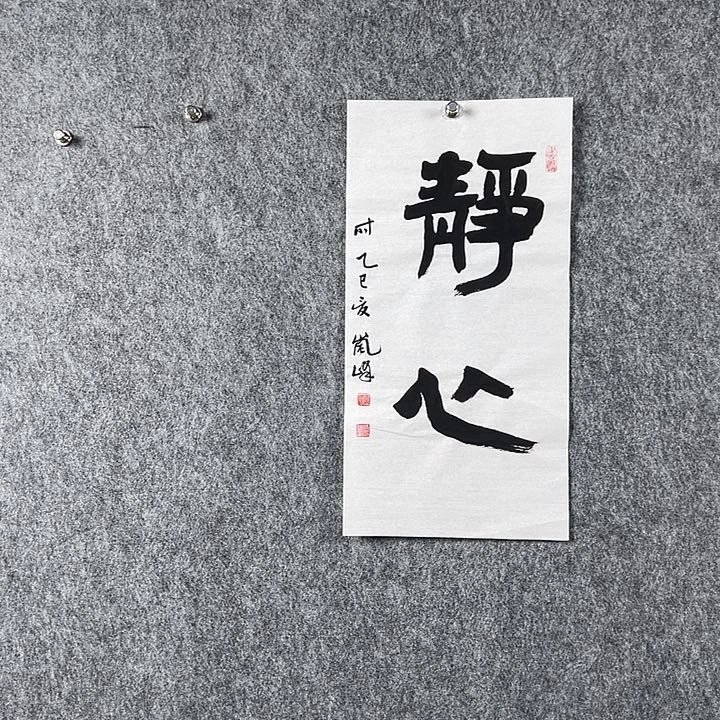 靜心
时乙巳夏嵐峰